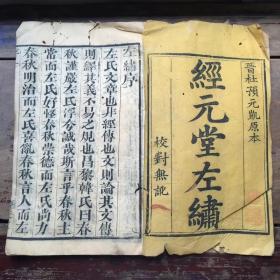 晉杜預元凱原本
經元堂左繡
校對無訛
左繡序
左氏文章也非經傳也文則論其文傳
則經其義不易之旨也昌黎韓氏曰春
秋謹嚴左氏浮夸誠哉斯言乎春秋主
常而左氏好怪春秋崇德而左氏尚力
春秋明治而左氏喜亂春秋言人而左